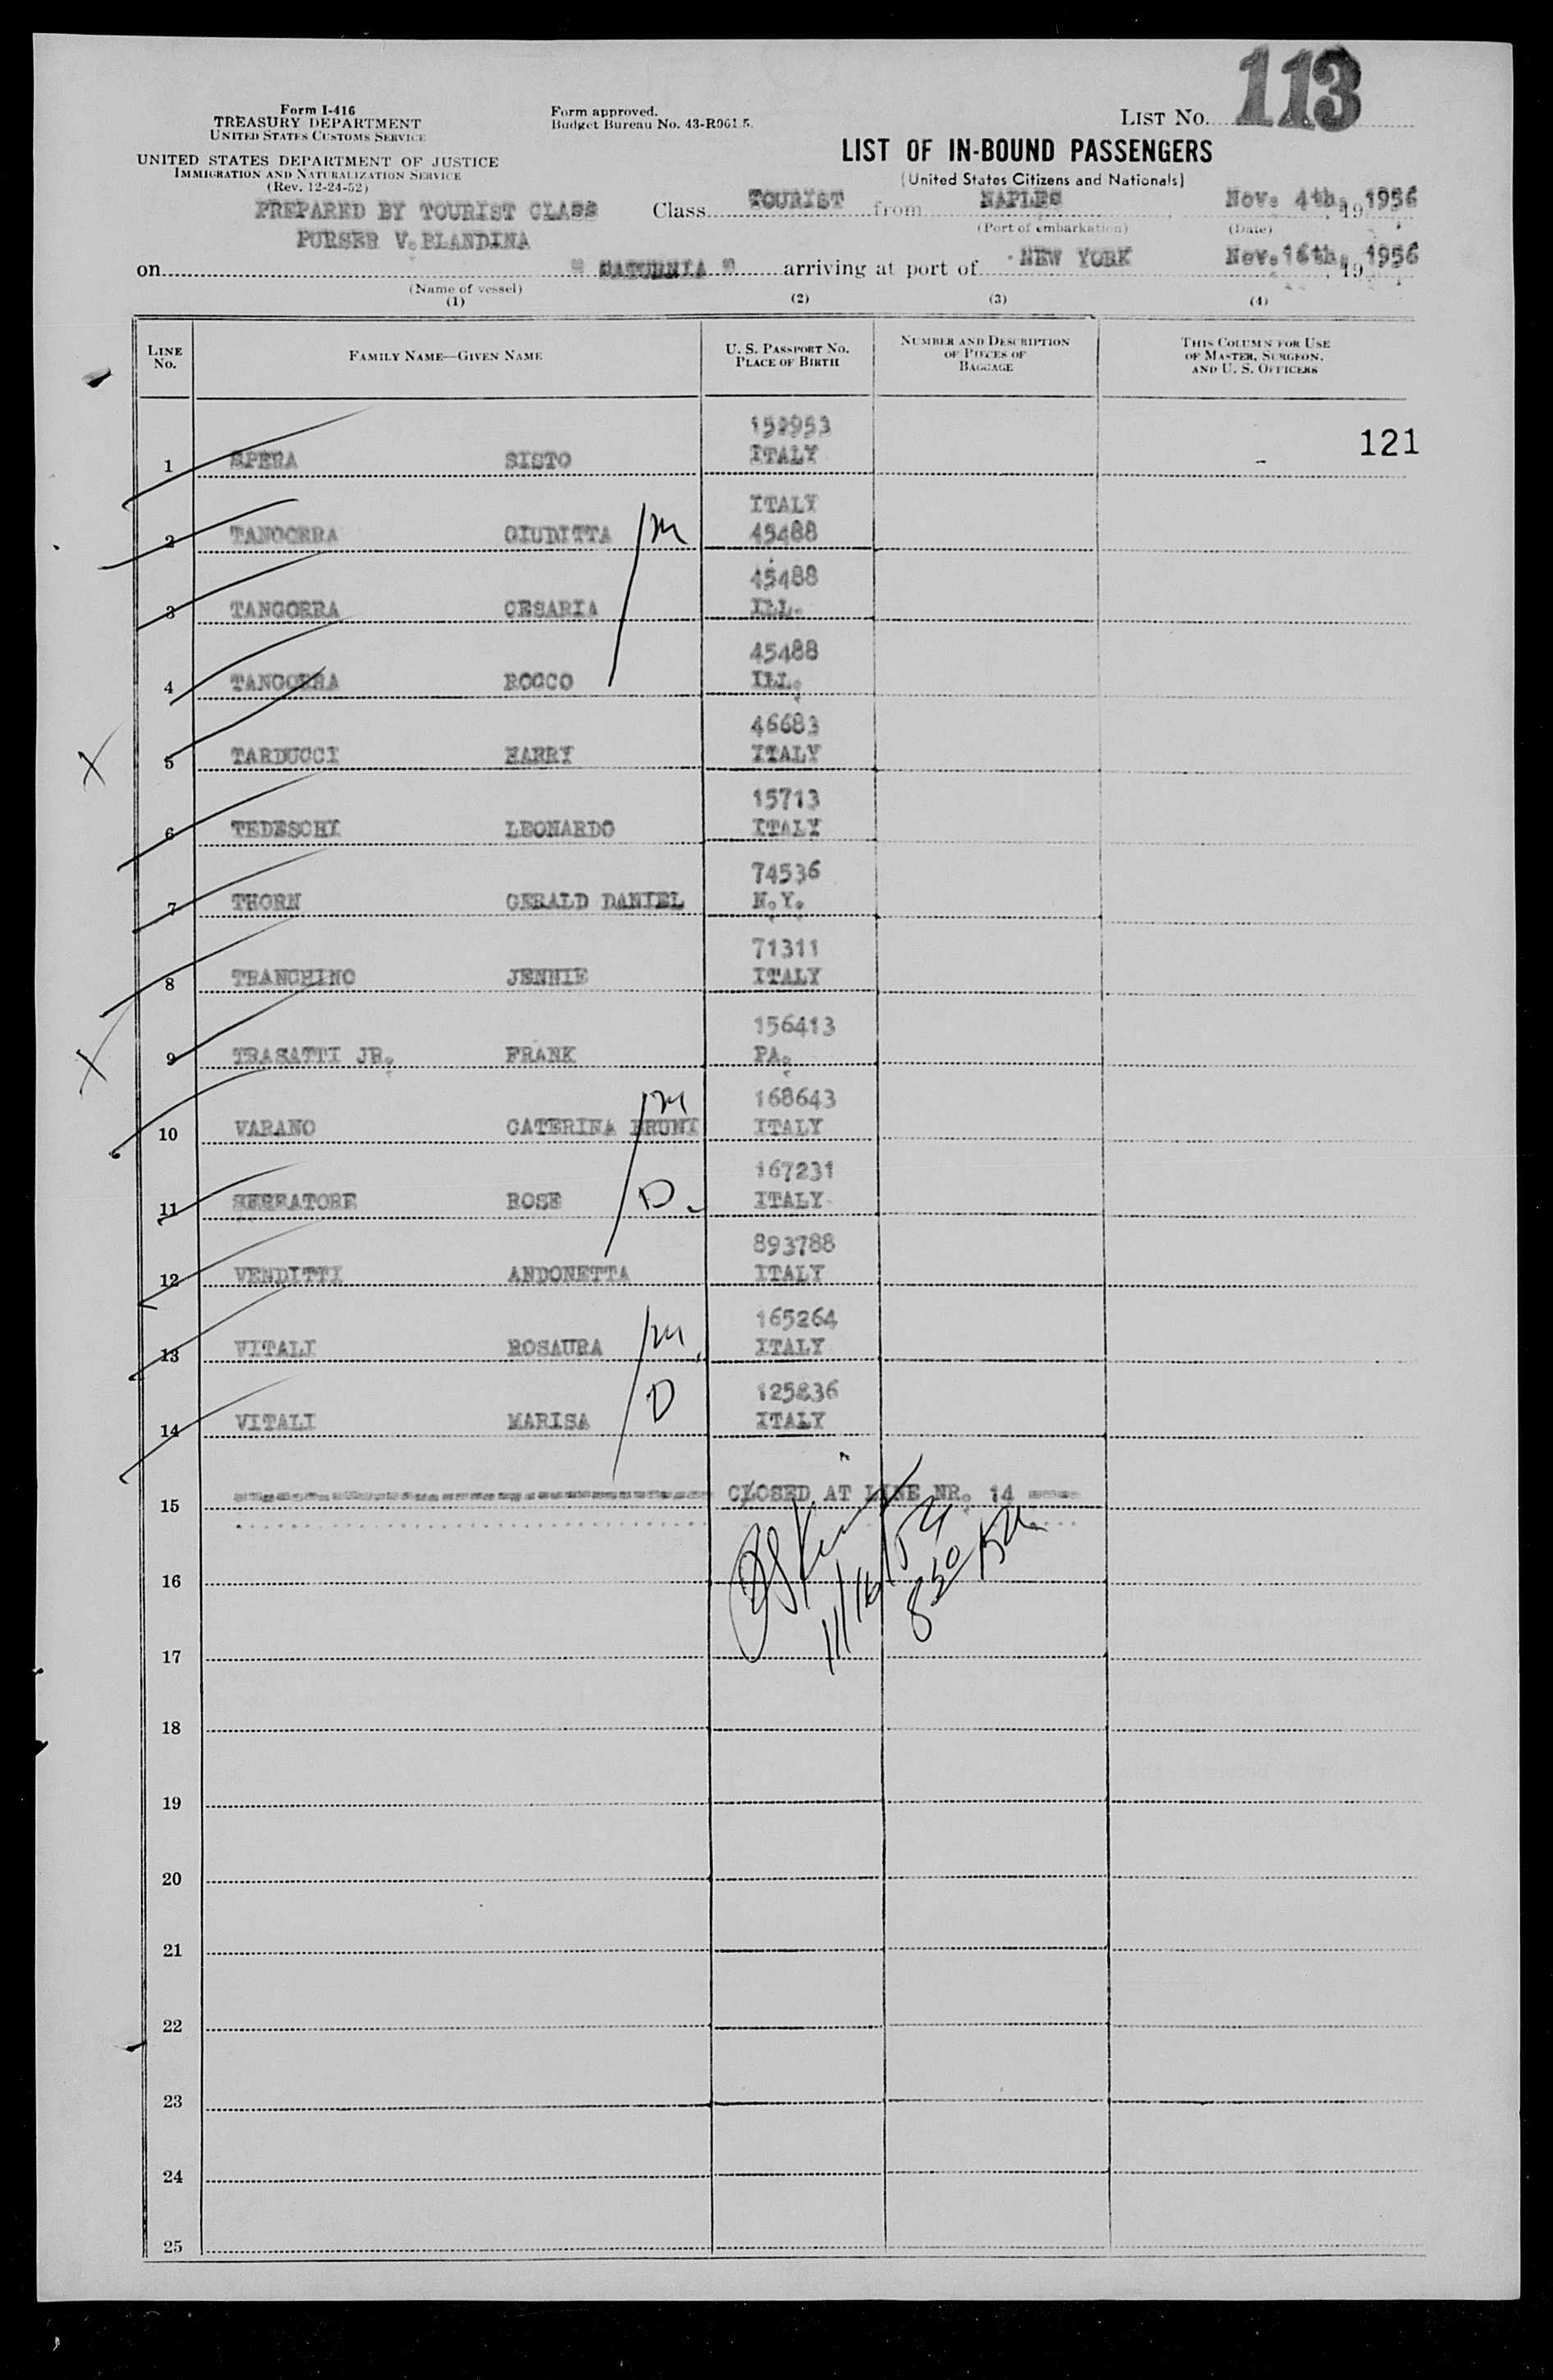 113
Form I-416
TREASURY DEPARTMENT
UNITED STATES CUSTOMS SERVICE
Form approved.
Budget Bureau No. 43-R061.5.
LIST NO.
UNITED STATES DEPARTMENT OF JUSTICE
IMMIGRATION AND NATURALIZATION SERVICE
(Rev. 12-24-52)
LIST OF IN-BOUND PASSENGERS
(United States Citizens and Nationals)
PREPARED BY TOURIST CLASS
PURSER V. BLANDINA
Class TOURIST from NAPLES Nov. 4th, 19 1956
(Port of embarkation) (Date)
on " SATURNIA " arriving at port of NEW YORK Nov. 16th, 19 1956
(Name of vessel)
(1) (2) (3) (4)
LINE NO. FAMILY NAME—GIVEN NAME U. S. PASSPORT NO. PLACE OF BIRTH NUMBER AND DESCRIPTION OF PIECES OF BAGGAGE THIS COLUMN FOR USE OF MASTER, SURGEON, AND U. S. OFFICERS
152953
1 SPERA SISTO ITALY 121
ITALY
2 TANGORRA GIUDITTA m 45488
45488
3 TANGORRA CESARIA ILL.
45488
4 TANGORRA ROCCO ILL.
46683
X 5 TARDUCCI HARRY ITALY
15713
6 TEDESCHI LEONARDO ITALY
74536
7 THORN GERALD DANIEL N.Y.
71311
8 TRANCHINO JENNIE ITALY
156413
X 9 TRASATTI JR. FRANK PA.
168643
10 VARANO CATERINA BRUNI m ITALY
167231
11 SERRATORE ROSE D ITALY
893788
12 VENDITTI ANDONETTA ITALY
165264
13 VITALI ROSAURA m ITALY
125836
14 VITALI MARISA D ITALY
15 CLOSED AT LINE NR. 14
11/16
16
17
18
19
20
21
22
23
24
25